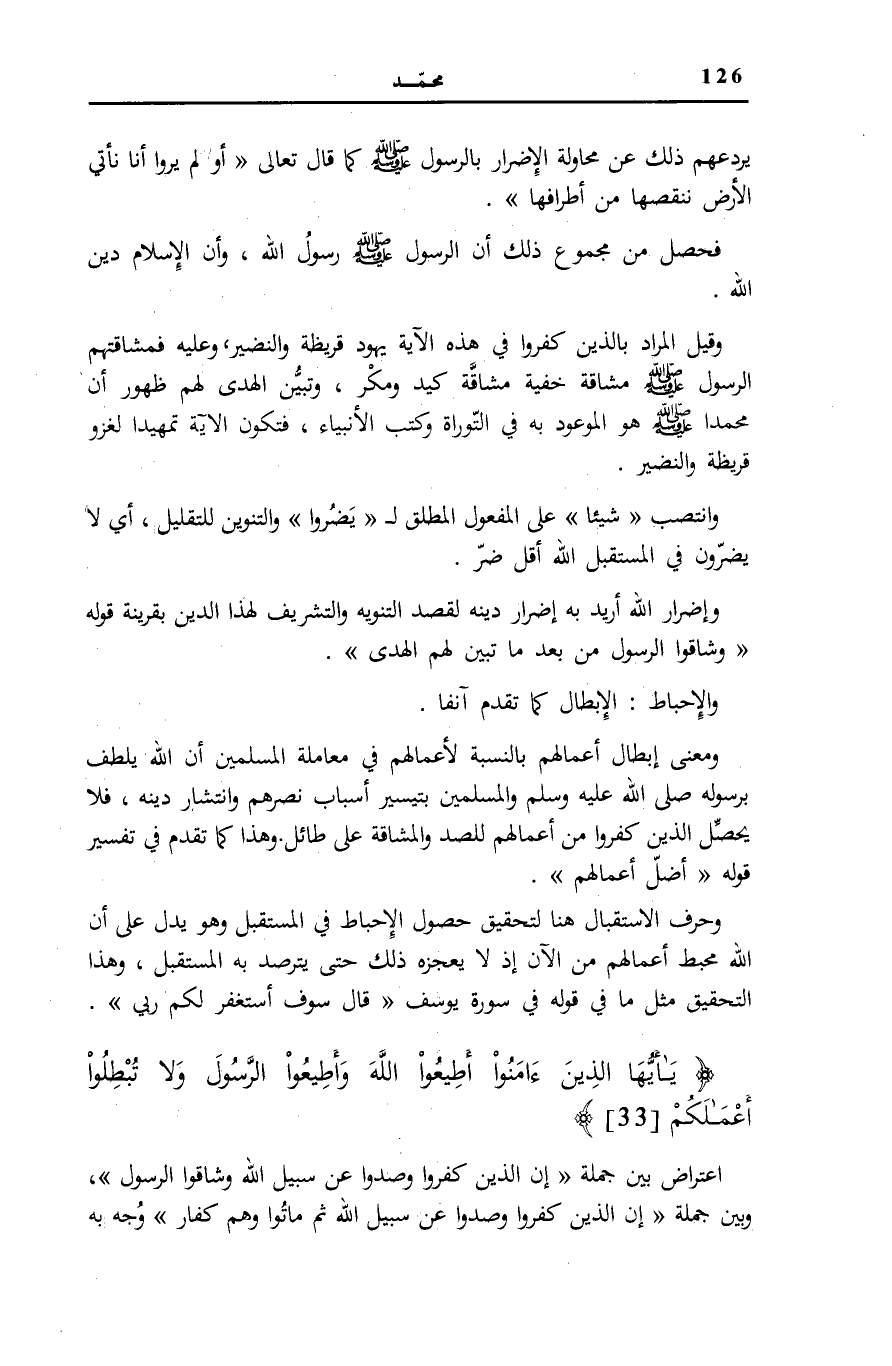 126
محمّـد
يردعهم ذلك عن محاولة الإضرار بالرسول ﷺ كما قال تعالى « أو لم يروا أنا نأتي
الأرض ننقصها من أطرافها » .
فحصل من مجموع ذلك أن الرسول ﷺ رسولُ الله ، وأن الإسلام دين
الله .
وقيل المراد بالذين كفروا في هذه الآية يهود قريظة والنضير، وعليه فمشاقتهم
الرسول ﷺ مشاقة خفية مشاقَّة كيد ومكْر ، وتبيُّن الهدى لهم ظهور أن
محمدا ﷺ هو الموعود به في التّوراة وكتب الأنبياء ، فتكون الآية تمهيدا لغزو
قريظة والنضير .
وانتصب « شيئا » على المفعول المطلق لـ « يَضُروا » والتنوين للتقليل ، أي لا
يضرّون في المستقبل الله أقل ضرّ .
وإضرار الله أريد به إضرار دينه لقصد التنويه والتشريف لهذا الدين بقرينة قوله
« وشاقوا الرسول من بعد ما تبين لهم الهدى » .
والإحباط : الإبطال كما تقدم آنفا .
ومعنى إبطال أعمالهم بالنسبة لأعمالهم في معاملة المسلمين أن الله يلطف
برسوله صلى الله عليه وسلم والمسلمين بتيسير أسباب نصرهم وانتشار دينه ، فلا
يحصِّل الذين كفروا من أعمالهم للصد والمشاقة على طائل.وهذا كما تقدم في تفسير
قوله « أضلّ أعمالهم » .
وحرف الاستقبال هنا لتحقيق حصول الإحباط في المستقبل وهو يدل على أن
الله محبط أعمالهم من الآن إذ لا يعجزه ذلك حتى يترصد به المستقبل ، وهذا
التحقيق مثل ما في قوله في سورة يوسف « قال سوف أستغفر لكم ربي » .
﴿ يَـٰأَيُّهَا الذِينَ ءَامَنُواْ أَطِيعُواْ اللَّهَ وَأَطِيعُواْ الرَّسُولَ وَلا تُبْطِلُواْ
أَعْمَـٰلَكُمْ [33] ﴾
اعتراض بين جملة « إن الذين كفروا وصدوا عن سبيل الله وشاقوا الرسول »،
وبين جملة « إن الذين كفروا وصدوا عن سبيل الله ثم ماتُوا وهم كفار » وُجه به